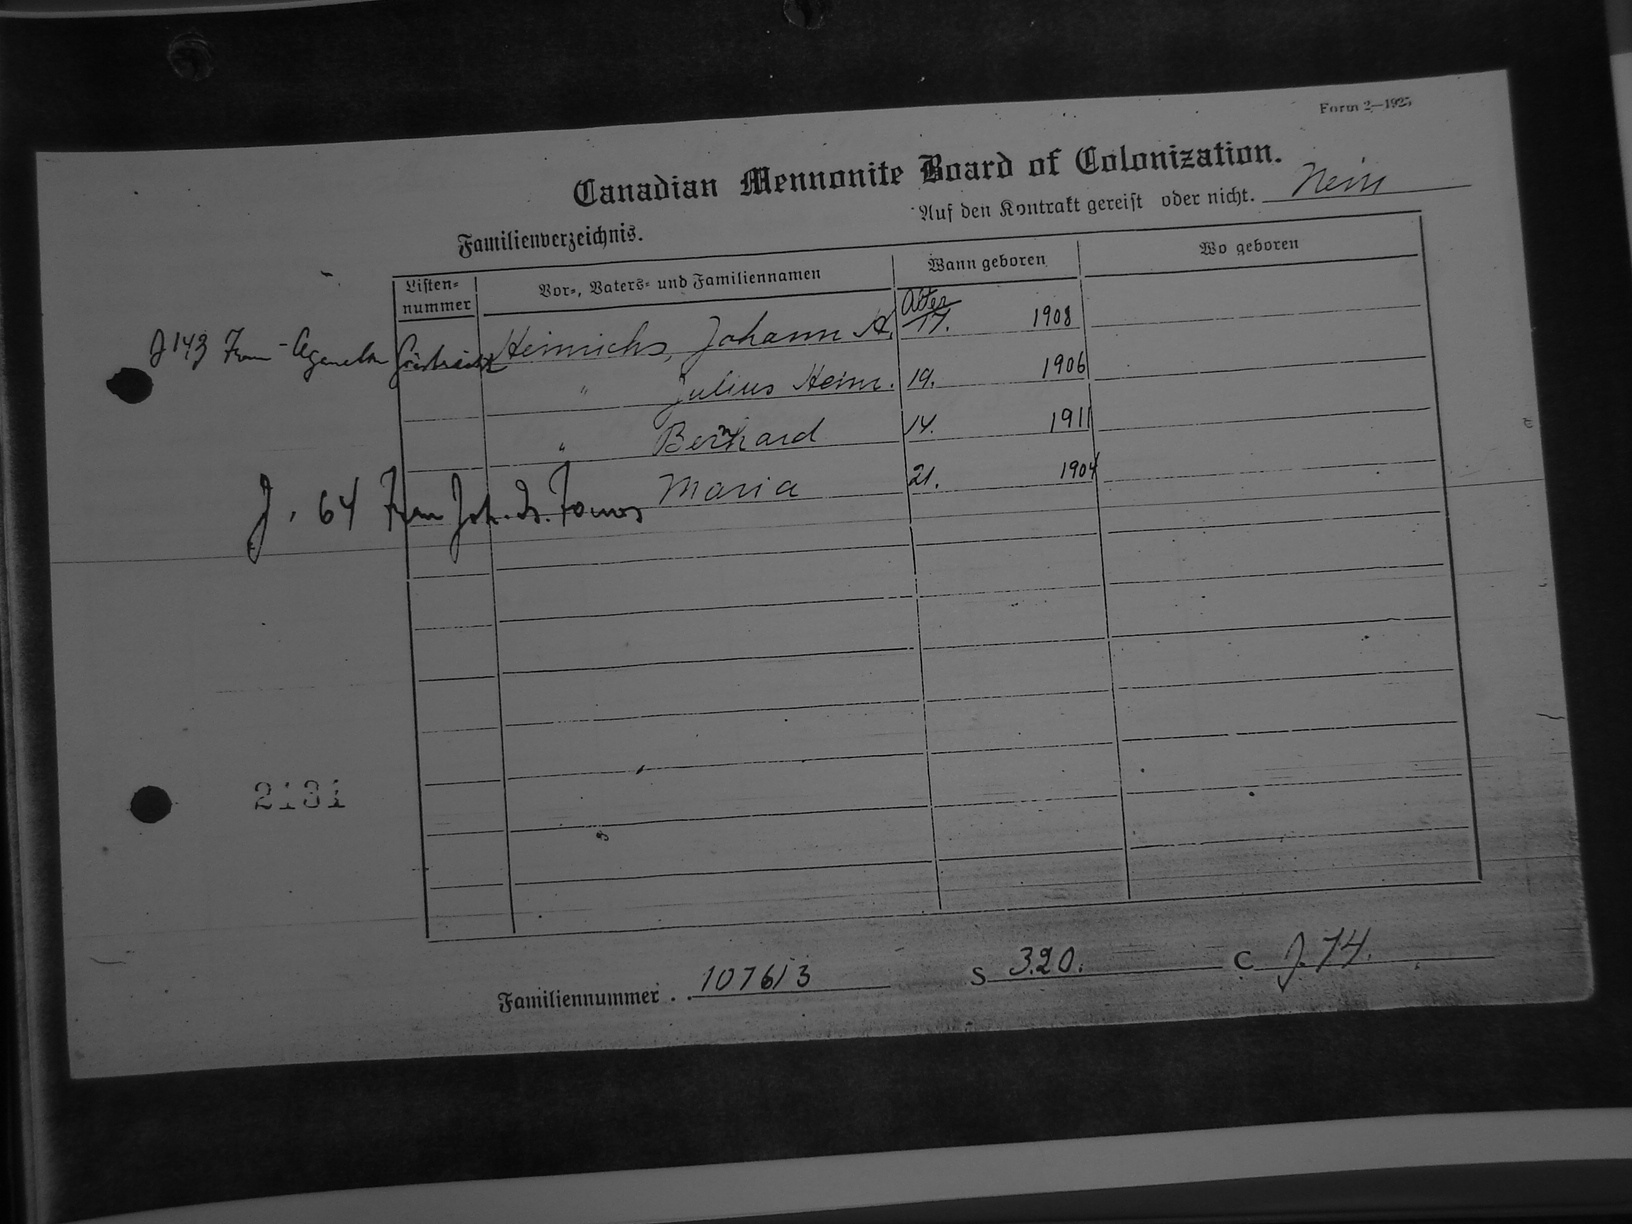 Form 2—1925
Canadian Mennonite Board of Colonization.
Auf den Kontrakt gereist oder nicht. Nein
Familienverzeichnis.
Listen-nummer Vor-, Vaters- und Familiennamen Wann geboren Wo geboren
Alter
J 143 Heinrichs, Johann H. 17. 1908
" Julius Heinr. 19. 1906
" Bernhard 14. 1911
Maria 21. 1904
J. 64 Joh.
2131
Familiennummer . . 107613 S 320. C J. 74.